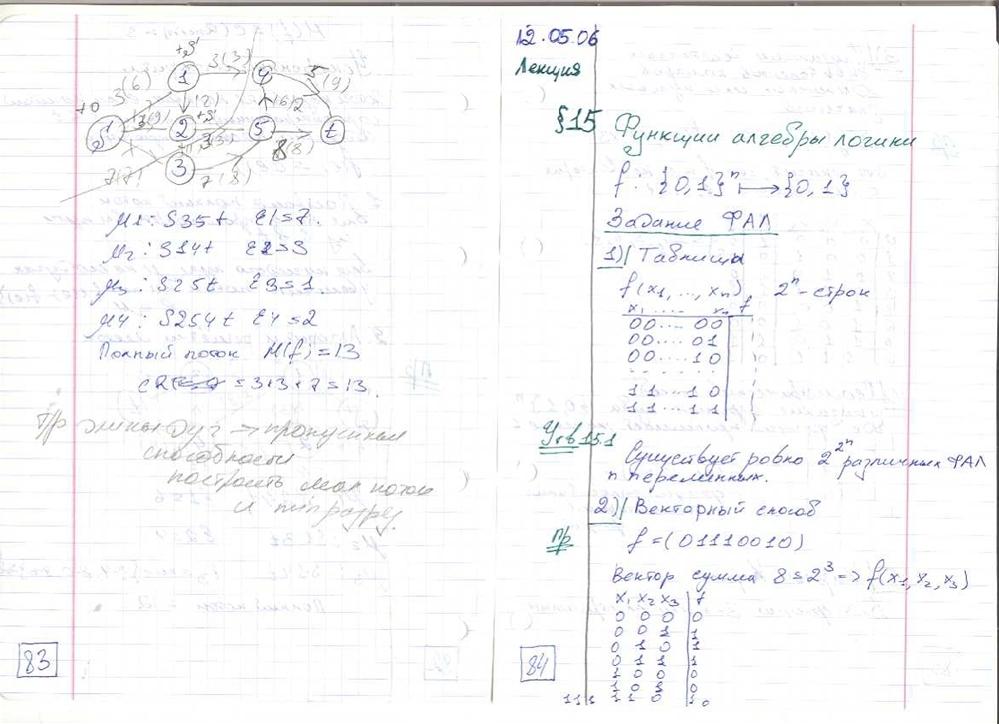 +0
+S
S
1
2
3
4
5
t
3(6)
3(3)
5(9)
3(9)
(2)
+S
3(3)
(6)2
8(8)
7(7)
7(8)
М1: S35t ε1=7.
М2: S14t ε2=3
М3: S25t ε3=1.
М4: S254t ε4=2
Полный поток М(f)=13
=3+3+7=13.
Т/р длины дуг → пропускные
способности
построить мак поток
и min разрез.
83
12.05.06
Лекция
§15 Функции алгебры логики
f: {0,1}ⁿ ↦ {0,1}
Задание ФАЛ
1) Таблицы
f(x₁, ..., xₙ) 2ⁿ-строк
x₁ .... xₙ f
00....00
00....01
00...10
- - - - - -
11...10
11...11
Утв 15.1
Существует ровно 2^2ⁿ различных ФАЛ
n переменных.
2) Векторный способ
Пр f=(01110010)
Вектор сумма 8=2³ => f(x₁, x₂, x₃)
x₁ x₂ x₃ f
0 0 0 0
0 0 1 1
0 1 0 1
0 1 1 1
1 0 0 0
1 0 1 0
1 1 0 1
111 0
84